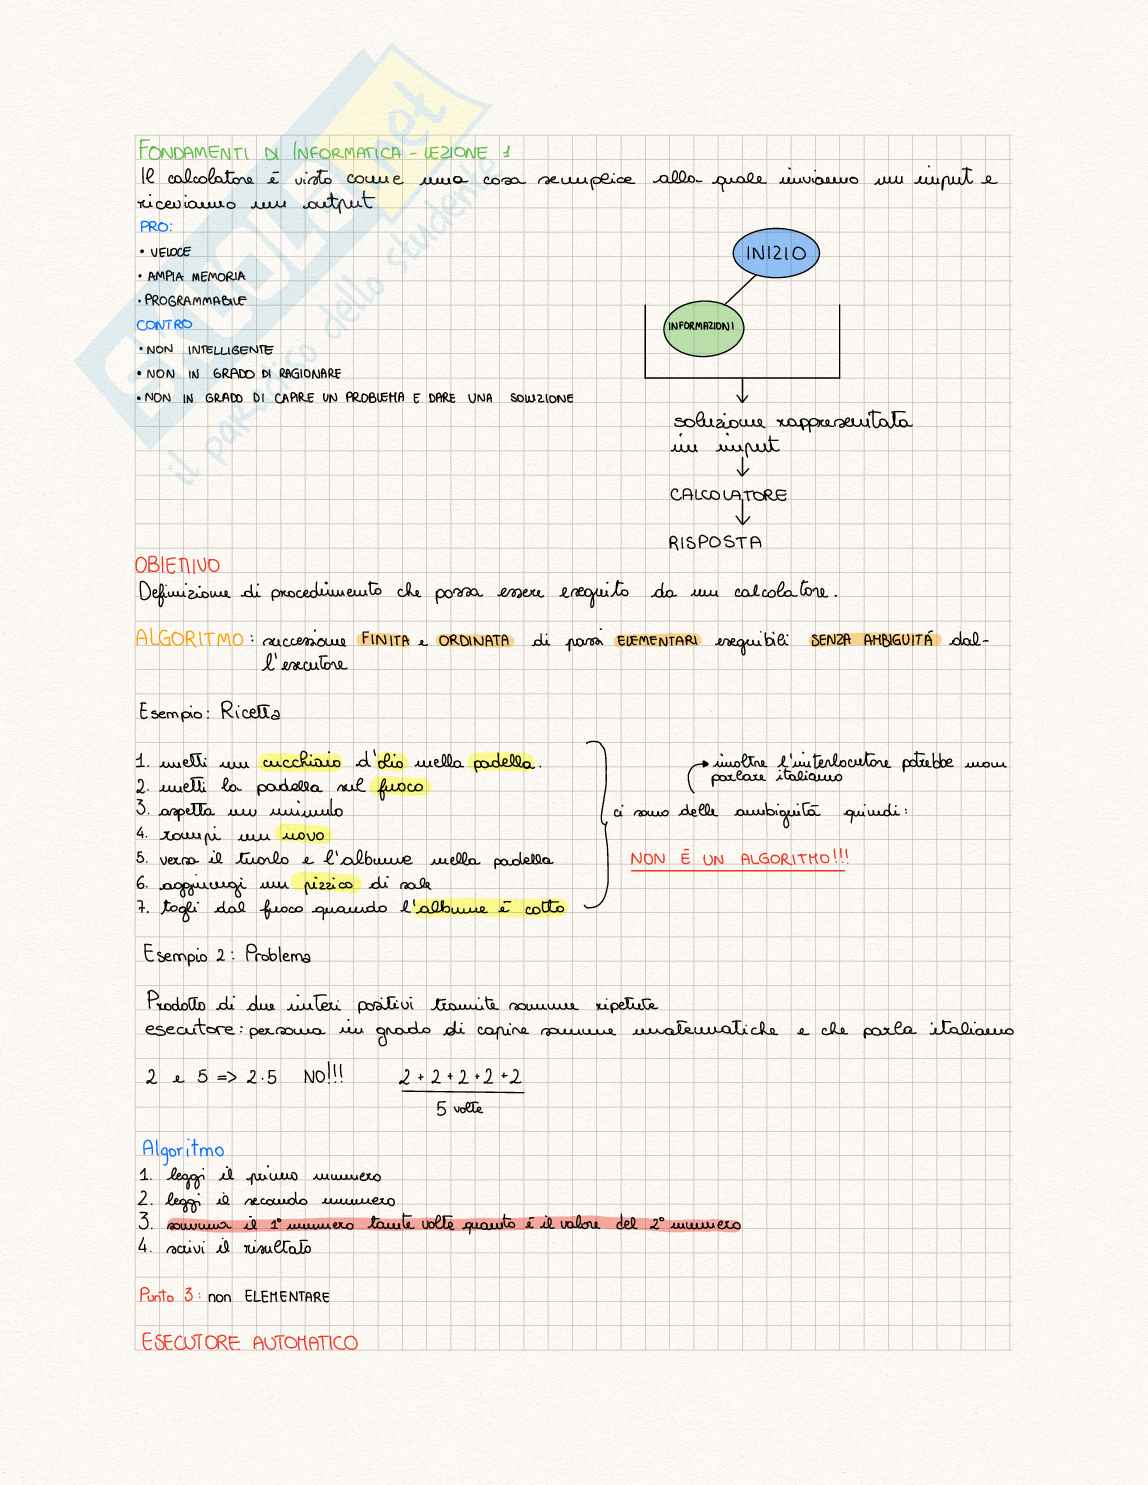 FONDAMENTI DI INFORMATICA - LEZIONE 1
Il calcolatore è visto come una cosa semplice alla quale inviamo un input e
riceviamo un output
PRO:
• VELOCE
• AMPIA MEMORIA
• PROGRAMMABILE
CONTRO
• NON INTELLIGENTE
• NON IN GRADO DI RAGIONARE
• NON IN GRADO DI CAPIRE UN PROBLEMA E DARE UNA SOLUZIONE
INIZIO
INFORMAZIONI
soluzione rappresentata
in input
CALCOLATORE
RISPOSTA
OBIETTIVO
Definizione di procedimento che possa essere eseguito da un calcolatore.
ALGORITMO: successione FINITA e ORDINATA di passi ELEMENTARI eseguibili SENZA AMBIGUITÁ dal-
l'esecutore
Esempio: Ricetta
1. metti un cucchiaio d'olio nella padella.
2. metti la padella sul fuoco
3. aspetta un minuto
4. rompi un uovo
5. versa il tuorlo e l'albume nella padella
6. aggiungi un pizzico di sale
7. togli dal fuoco quando l'albume è cotto
inoltre l'interlocutore potrebbe non
parlare italiano
ci sono delle ambiguità quindi:
NON È UN ALGORITMO!!!
Esempio 2: Problema
Prodotto di due interi positivi tramite somme ripetute
esecutore: persona in grado di capire somme matematiche e che parla italiano
2 e 5 => 2·5 NO!!! 2 + 2 + 2 + 2 + 2
5 volte
Algoritmo
1. leggi il primo numero
2. leggi il secondo numero
3. somma il 1° numero tante volte quanto è il valore del 2° numero
4. scrivi il risultato
Punto 3: non ELEMENTARE
ESECUTORE AUTOMATICO
SKUOLA.net
il paradiso dello studente